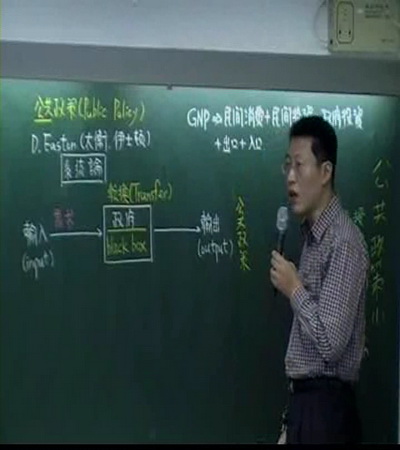 公共政策(Public Policy)
D. Eastan (大衛.伊士頓)
轉換(Transfer)
輸入
(input)
需求
政府
black box
輸出
(output)
公共政策
GNP⇒民間消費+民間投資 政府投資
公共政策小